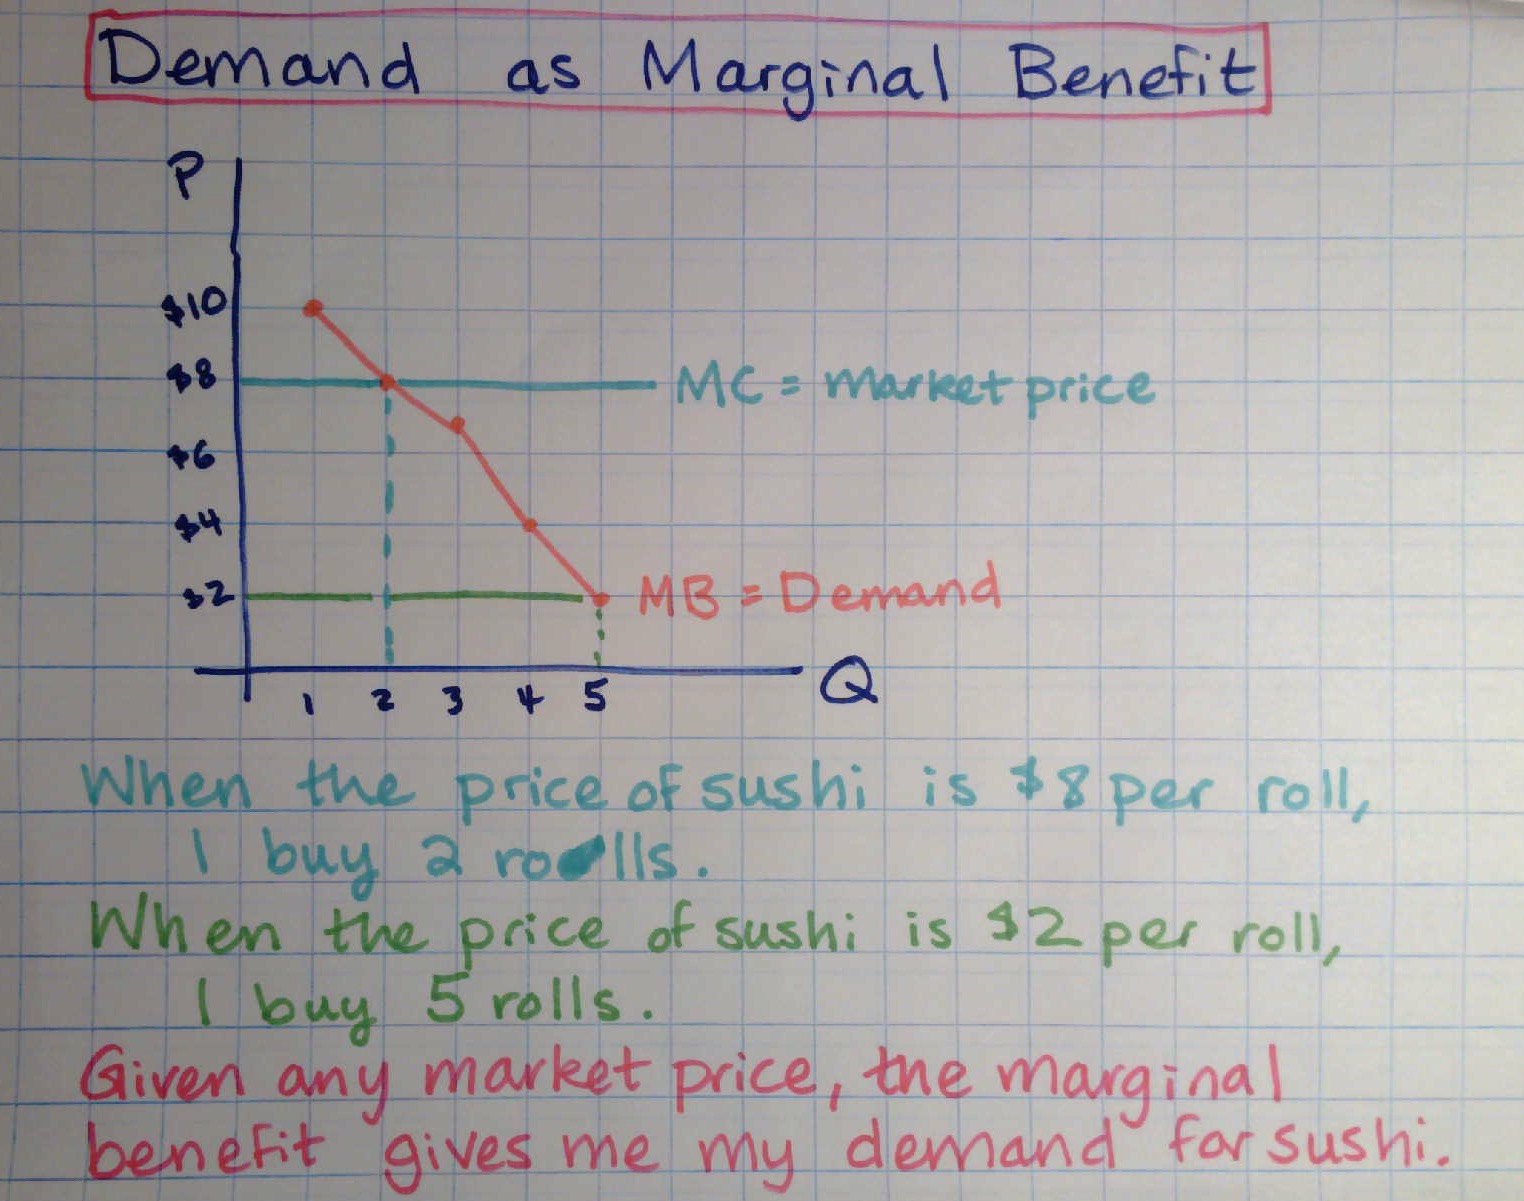 Demand as Marginal Benefit
P
$10
$8
MC = Market price
$6
$4
$2
MB = Demand
1 2 3 4 5
Q
When the price of sushi is $8 per roll,
I buy 2 rolls.
When the price of sushi is $2 per roll,
I buy 5 rolls.
Given any market price, the marginal
benefit gives me my demand for sushi.